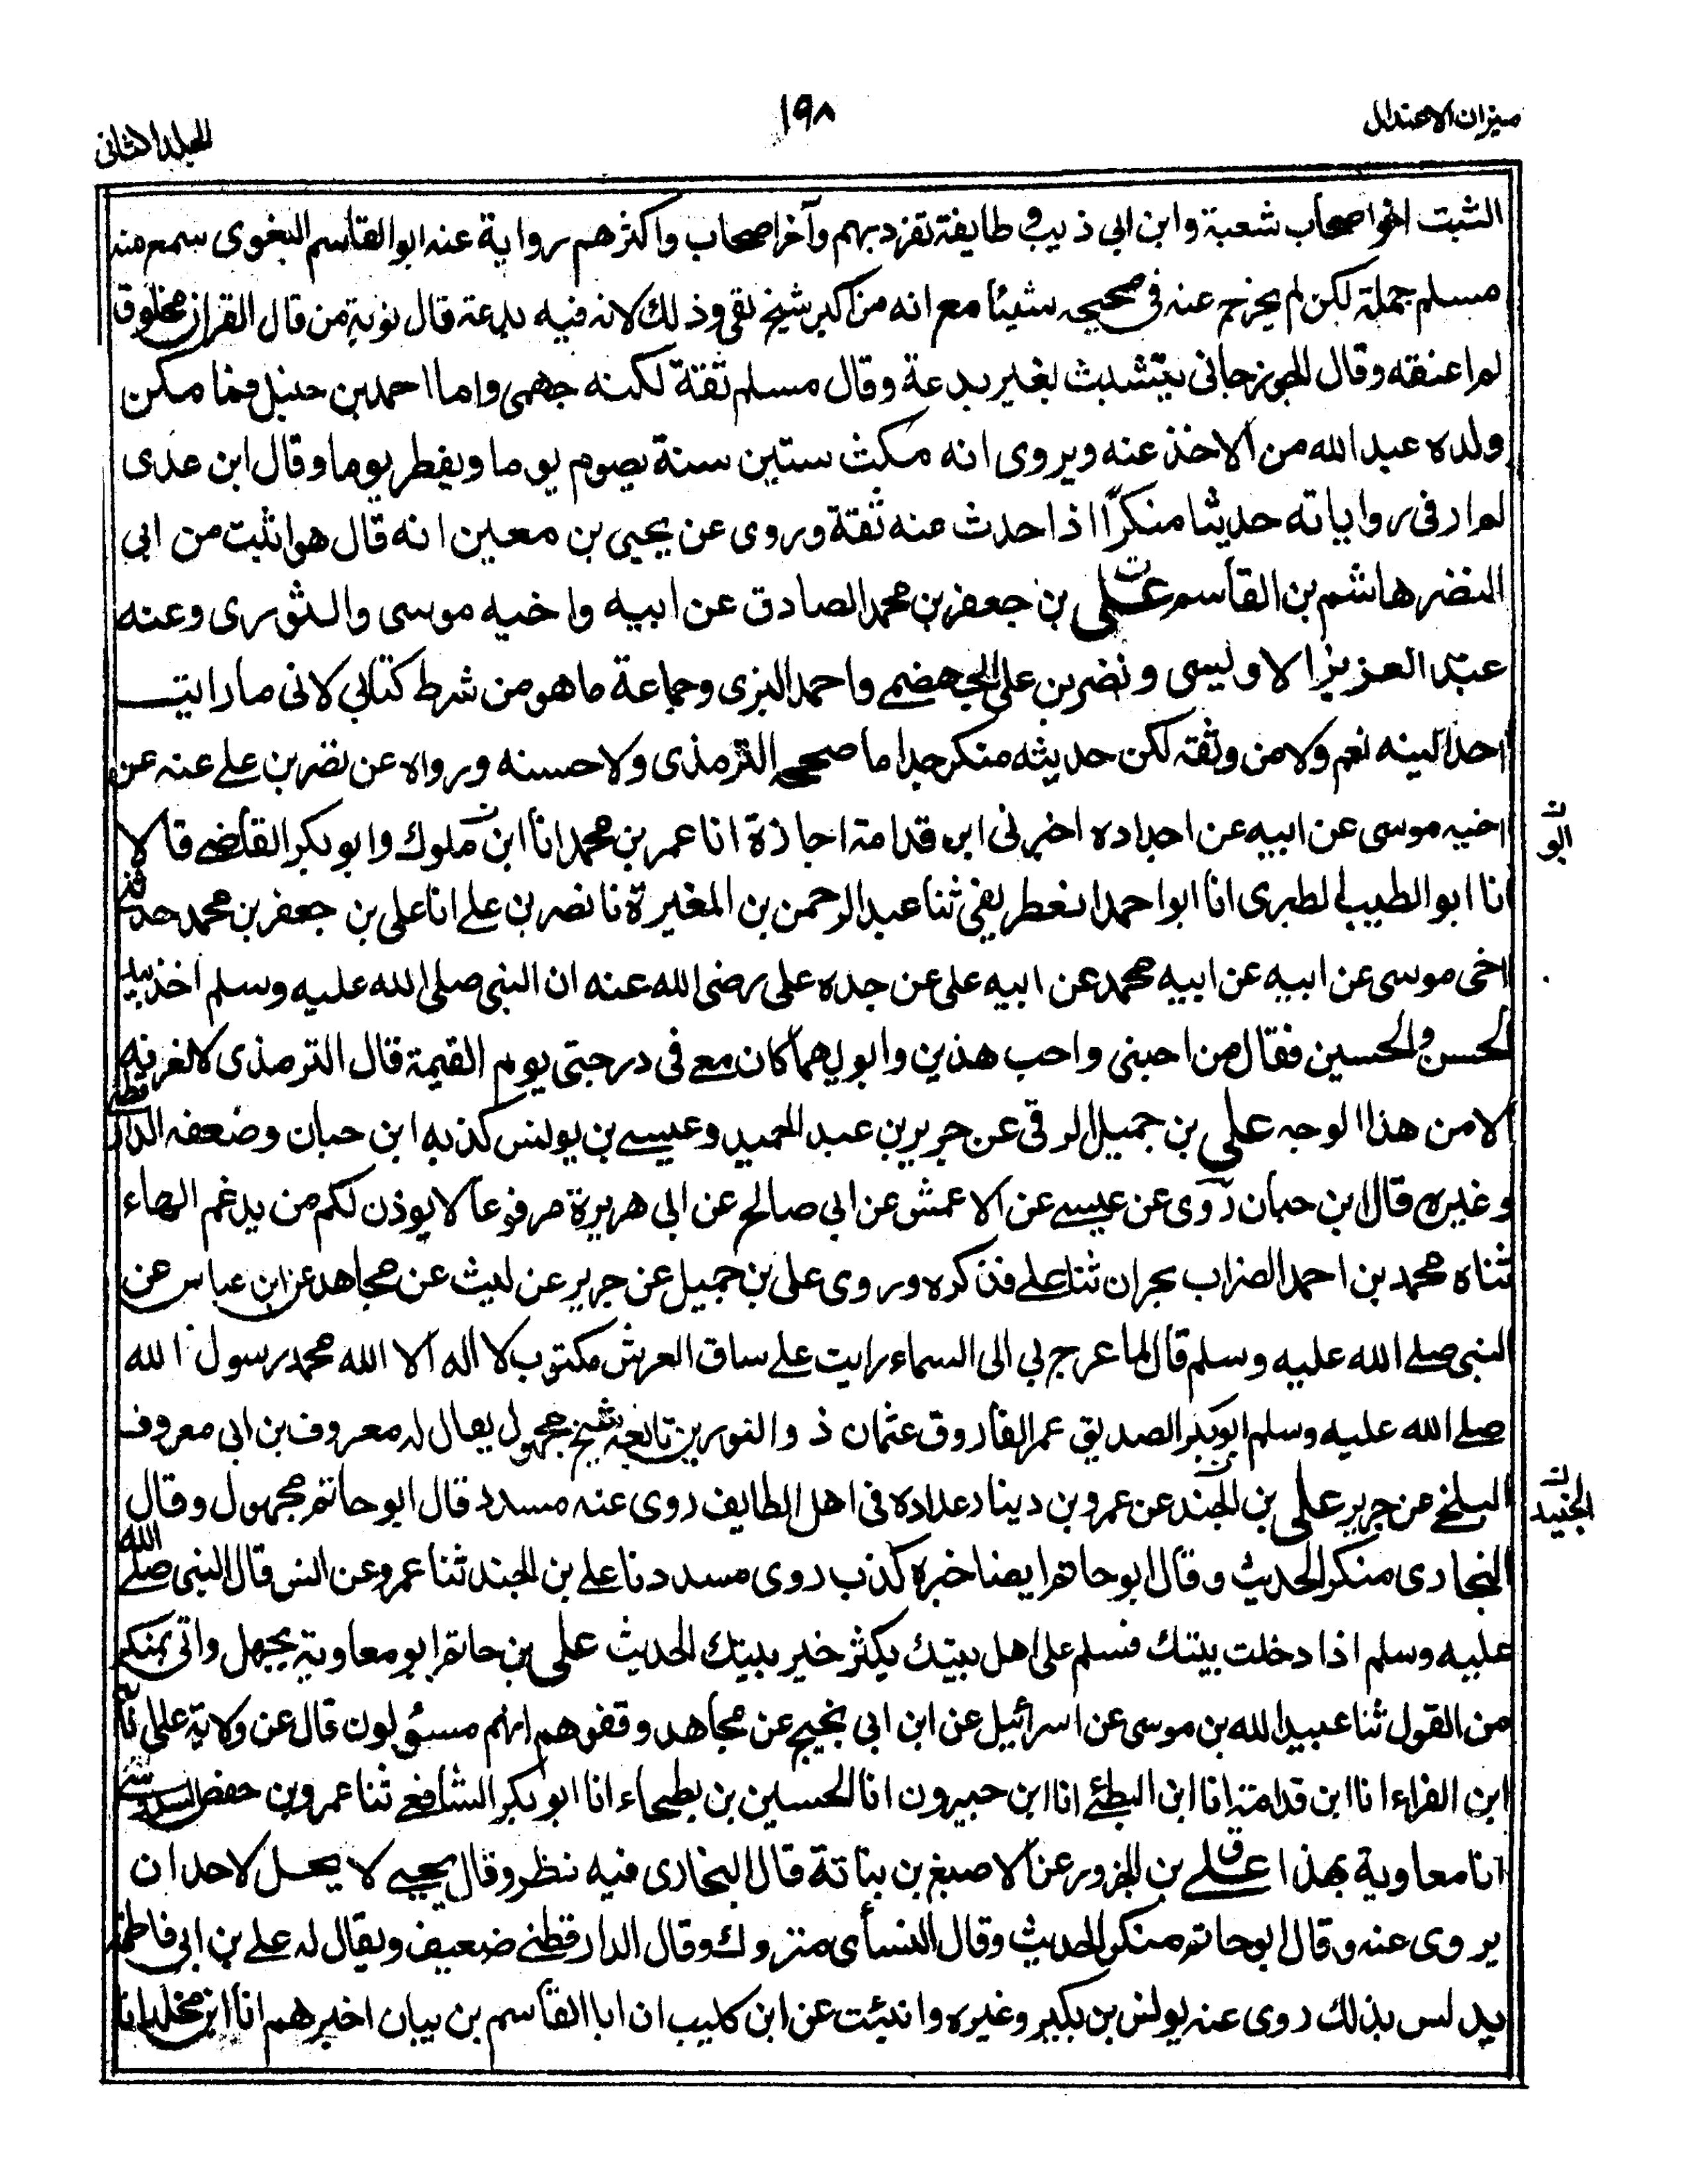 ميزان الاعتدال
١٩٨
المجلد الثانى
الثبت اخو اصحاب شعبة وابن ابى ذيب فى طايفة تفرد بهم وآخر اصحاب واكثرهم رواية عنه ابو القاسم البغوى سمع منه
مسلم جملة لكن لم يخرج عنه فى صحيحه شيئا مع انه من اكبر شيخ لقى وذلك لانه فيه بدعة قال نوبة من قال القران مخلوق
لم اعنفه وقال الجوزجانى يتشبث بغير بدعة وقال مسلم ثقة لكنه جهمى واما احمد بن حنبل فما مكن
ولده عبد الله من الاخذ عنه ويروى انه مكث ستين سنة يصوم يوما ويفطر يوما وقال ابن عدى
لم ار فى رواياته حديثا منكرا اذا حدث عنه ثقة وروى عن يحيى بن معين انه قال هو اثبت من ابى
النضر هاشم بن القاسم على ت بن جعفر بن محمد الصادق عن ابيه واخيه موسى والثورى وعنه
عبد العزيز الاوليسى ونضر بن على الجهضمى واحمد البزى وجماعة ما هو من شرط كتابى لانى ما رايت
احدا لينه نعم ولا من وثقه لكن حديثه منكر جدا ما صححه الترمذى ولا حسنه ورواه عن نضر بن على عنه عن
اخيه موسى عن ابيه عن اجداده اخبرنى ابن قدامة اجازة انا عمر بن محمد انا ابن ملوك وابو بكر القاضى قالا
ابو
انا ابو الطيب الطبرى انا ابو احمد الغطريفى ثنا عبد الرحمن بن المغيرة نا نضر بن على انا على بن جعفر بن محمد حدثنى
اخى موسى عن ابيه عن ابيه محمد عن ابيه على عن جده على رضى الله عنه ان النبى صلى الله عليه وسلم اخذ بيد
الحسن والحسين فقال من احبنى واحب هذين وابويهما كان معى فى درجتى يوم القيمة قال الترمذى لا نعرفه
الا من هذا الوجه على بن جميل الرقى عن جرير بن عبد الحميد وعيسى بن يونس كذبه ابن حبان وضعفه الدارقطنى
وغيره قال ابن حبان روى عن عيسى عن الاعمش عن ابى صالح عن ابى هريرة مرفوعا لا يوذن لكم من يدغم الهاء
ثناه محمد بن احمد الضراب بحران ثنا على فذكره وروى على بن جميل عن جرير عن ليث عن مجاهد عن ابن عباس عن
النبى صلى الله عليه وسلم قال لما عرج بى الى السماء رايت على ساق العرش مكتوب لا اله الا الله محمد رسول الله
صلى الله عليه وسلم ابو بكر الصديق عمر الفاروق عثمان ذو النورين تابعه شيخ مجهول يقال له معروف بن ابى معروف
البلخى عن جرير على بن الجند عن عمرو بن دينار عداده فى اهل الطايف روى عنه مسدد قال ابو حاتم مجهول وقال
الجنيد
البخارى منكر الحديث وقال ابو حاتم ايضا خبره كذب روى مسدد نا على بن الجند ثنا عمرو عن انس قال النبى صلى الله
عليه وسلم اذا دخلت بيتك فسلم على اهل بيتك يكثر خير بيتك الحديث على بن حاتم ابو معاوية يجهل واتى بمنكر
من القول ثنا عبيد الله بن موسى عن اسرائيل عن ابن ابى نجيح عن مجاهد وقفوهم انهم مسئولون قال عن ولاية على انا
ابن الفراء انا ابن قدامة انا ابن البطى انا ابن خيرون انا الحسين بن بطحاء انا ابو بكر الشافعى ثنا عمرو بن حفص السدوسى
انا معاوية بهذا على ق بن الجزور عن الاصبغ بن بناتة قال البخارى فيه نظر وقال يحيى لا يحل لاحد ان
يروى عنه وقال ابو حاتم منكر الحديث وقال النسأى متروك وقال الدارقطنى ضعيف ويقال له على بن ابى فاطمة
يدلس بذلك روى عنه يونس بن بكير وغيره وانبئت عن ابن كليب ان ابا القاسم بن بيان اخبرهم انا ابن مخلد انا